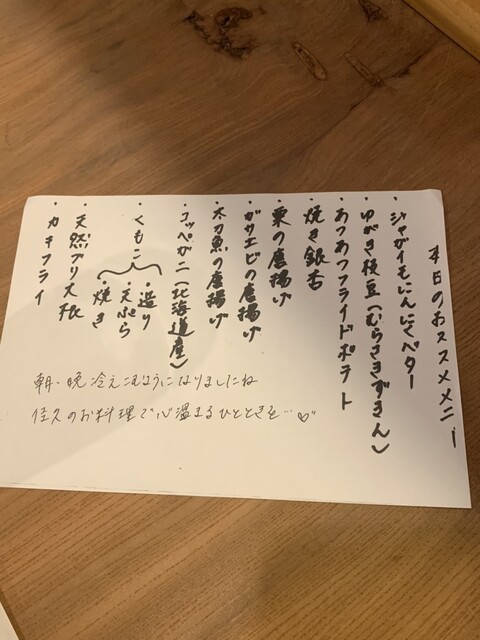 本日のおススメメニー
・ジャガイモにんにくバター
・ゆがき枝豆(むらさきずきん)
・あつあつフライドポテト
・焼き銀杏
・栗の唐揚げ
・ガサエビの唐揚げ
・太刀魚の唐揚げ
・コッペガニ(北海道産)
・くもこ
・造り
・天ぷら
・焼き
・天然ブリ大根
・カキフライ
朝・晩冷えこむようになりましたね
佳久のお料理で心温まるひとときを…♡